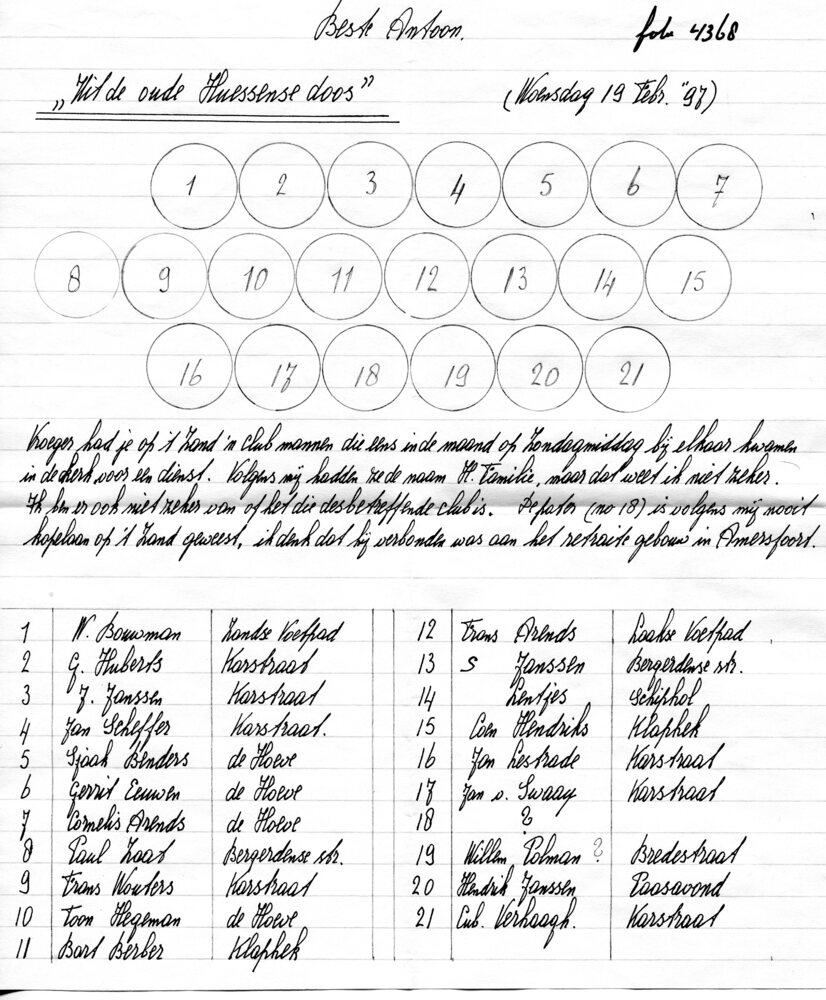 Beste Antoon. foto 4368
„Uit de oude Huessense doos” (Woensdag 19 Febr. "97)
1 2 3 4 5 6 7
8 9 10 11 12 13 14 15
16 17 18 19 20 21
Vroeger had je op 't Zand 'n club mannen die eens in de maand op Zondagmiddag bij elkaar kwamen
in de kerk voor een dienst. Volgens mij hadden ze de naam H. Familie, maar dat weet ik niet zeker.
Ik ben er ook niet zeker van of het die desbetreffende club is. De pater (no 18) is volgens mij nooit
kapelaan op 't Zand geweest, ik denk dat hij verbonden was aan het retraite gebouw in Amersfoort.
1 W. Bouwman Zandse Voetpad
2 G. Huberts Karstraat
3 J. Janssen Karstraat
4 Jan Scheffer Karstraat.
5 Sjaak Benders de Hoeve
6 Gerrit Eeuwen de Hoeve
7 Cornelis Arends de Hoeve
8 Paul Zaat Bergerdense str.
9 Frans Wouters Karstraat
10 Toon Hegeman de Hoeve
11 Bart Berber Klaphek
12 Frans Arends Laakse Voetpad
13 S Janssen Bergerdense str.
14 Lentjes Schiphol
15 Coen Hendriks Klaphek
16 Jan Lestrade Karstraat
17 Jan v. Swaay Karstraat
18 ?
19 Willem Polman ? Bredestraat
20 Hendrik Janssen Paasavond
21 Cub. Verhaagh. Karstraat